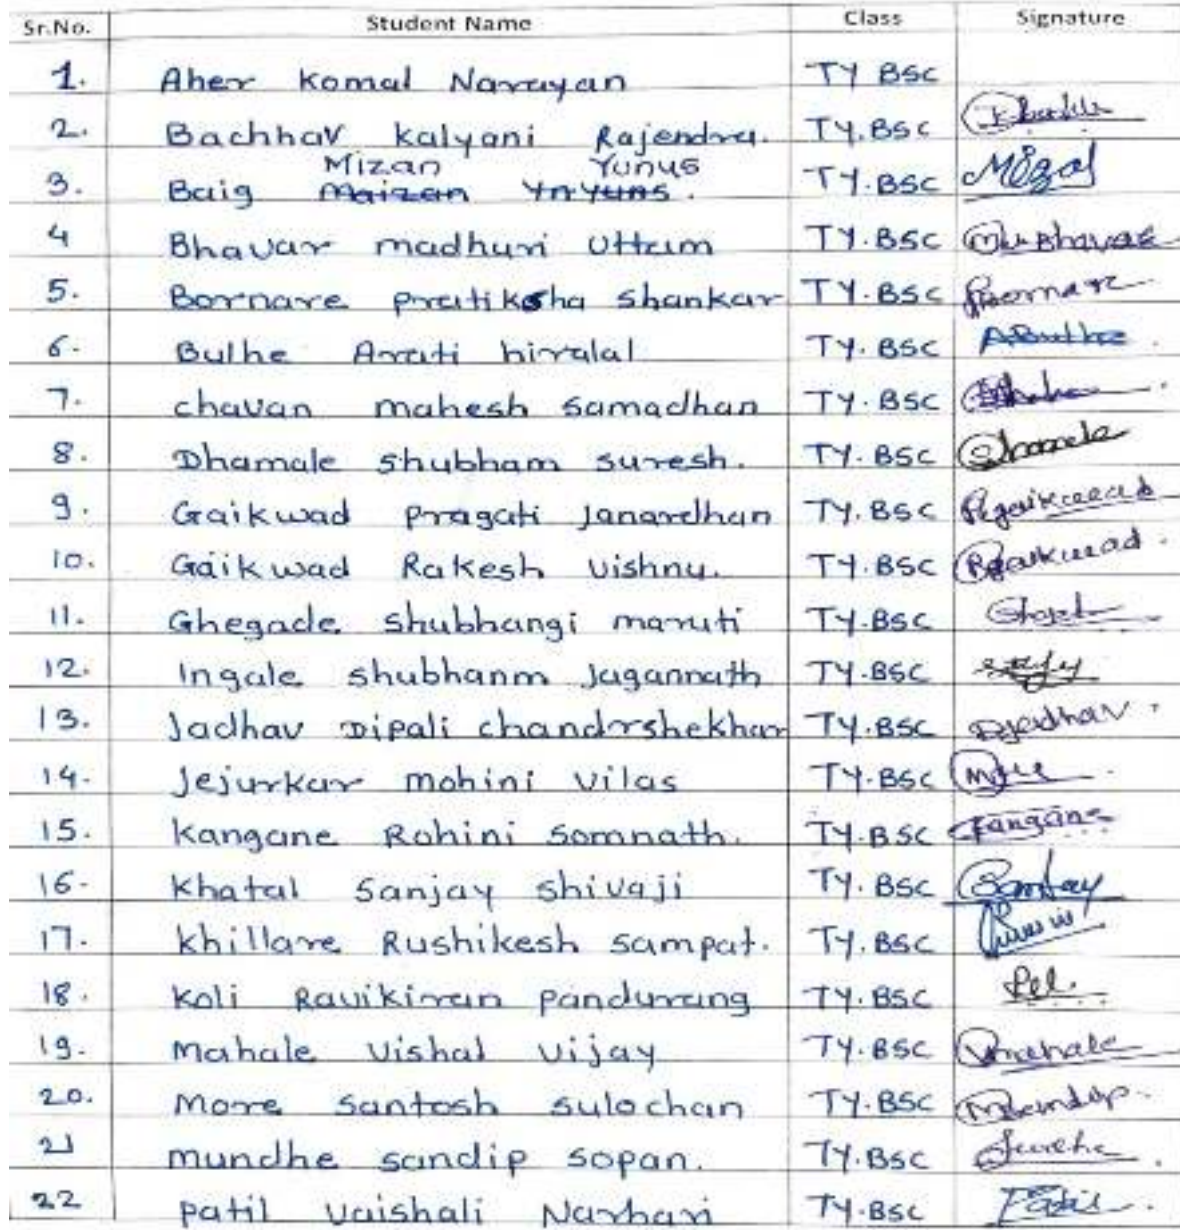 Sr.No. Student Name Class Signature
1. Aher Komal Narayan TY BSC
2. Bachhav Kalyani Rajendra. TY.BSC
Mizan Yunus
3. Baig Maizan YnYuns. TY.BSC
4 Bhavar madhuri Uttam TY.BSC MU Bhavar
5. Bornare pratiksha shankar TY.BSC Bornare
6. Bulhe Arati hiralal TY.BSC ABulhe
7. chavan mahesh samadhan TY.BSC
8. Dhamale shubham suresh. TY.BSC
9. Gaikwad pragati Janardhan TY.BSC Pgaikwad
10. Gaikwad Rakesh Vishnu. TY.BSC Rgaikwad.
11. Ghegade shubhangi maruti TY.BSC
12. Ingale shubhanm Jagannath TY.BSC
13. Jadhav Dipali chandrshekhar TY.BSC Djadhav.
14. Jejurkar mohini vilas TY.BSC
15. Kangane Rohini somnath. TY.BSC Kangane
16. Khatal Sanjay shivaji TY.BSC
17. Khillare Rushikesh sampat. TY.BSC
18. Koli Ravikiran pandurang TY.BSC
19. Mahale Vishal Vijay TY.BSC Vmahale
20. More santosh sulochan TY.BSC
21 mundhe sandip sopan. TY.BSC
22 patil vaishali Narhari TY.BSC Patil.